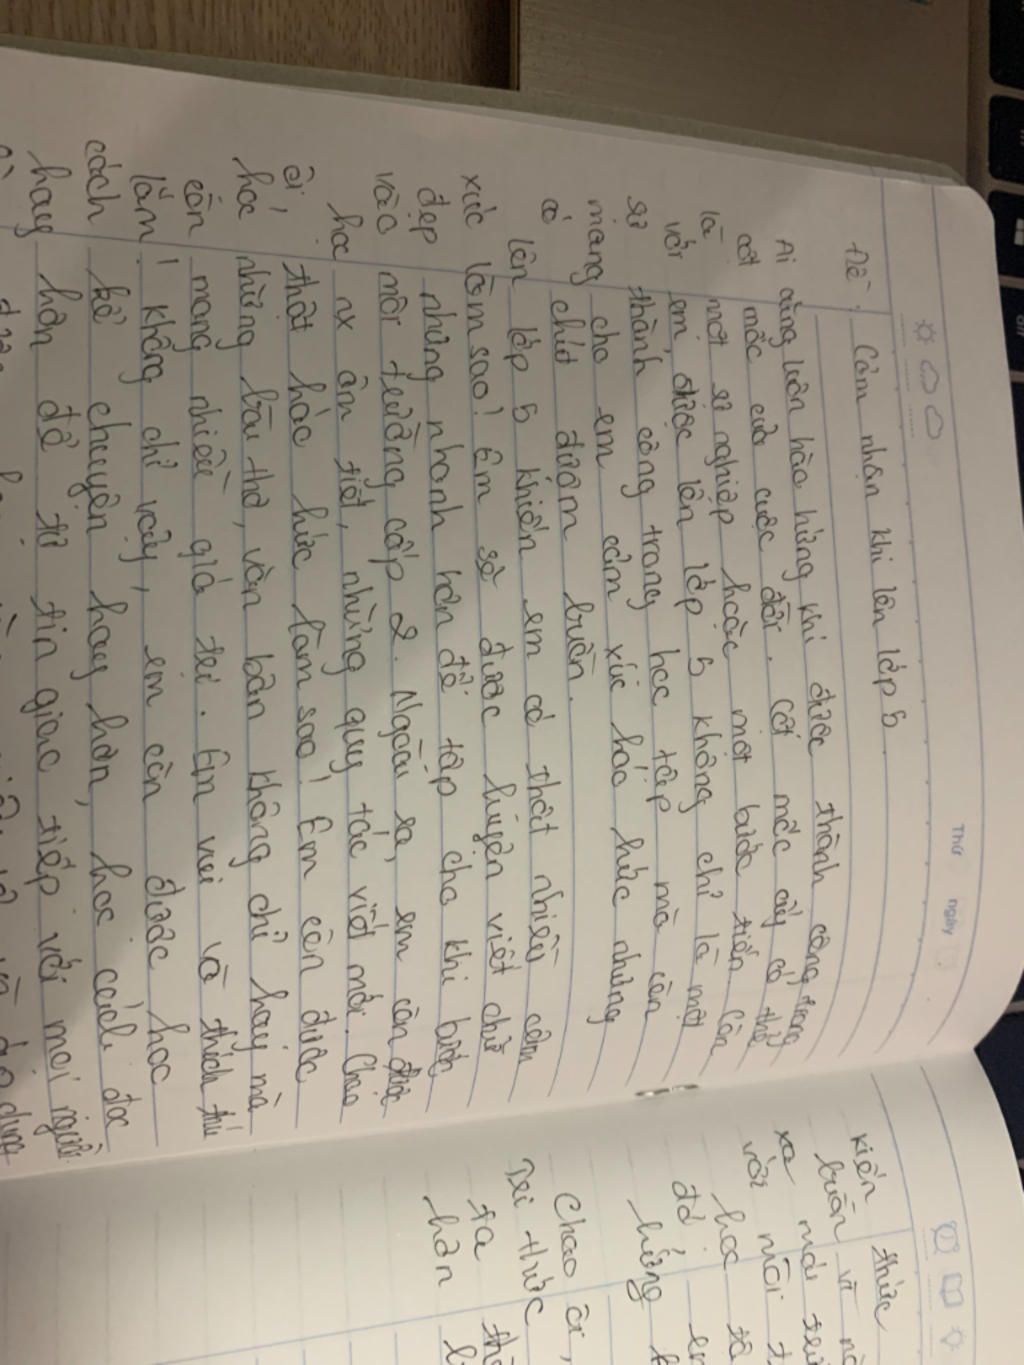 Thứ ngày
Đề: Cảm nhận khi lên lớp 5
Ai cũng luôn hào hứng khi được thành công trong
cột mốc của cuộc đời. Cột mốc ấy có thể
là một sự nghiệp hoặc một bước tiến. Còn
với em, được lên lớp 5 không chỉ là một
sự thành công trong học tập mà còn
mang cho em cảm xúc háo hức nhưng
có chút đượm buồn.
Lên lớp 5 khiến em có thật nhiều cảm
xúc làm sao! Em sẽ được luyện viết chữ
đẹp nhưng nhanh hơn để tập cho khi bước
vào môi trường cấp 2. Ngoài ra, em còn được
học nx âm tiết, những quy tắc viết mới. Chao
ôi, thật háo hức làm sao! Em còn được
học những bài thơ, văn bản không chỉ hay mà
còn mang nhiều giá trị. Em vui và thích thú
lắm! Không chỉ vậy, em còn được học
cách kể chuyện hay hơn, học cách đọc
hay hơn để tự tin giao tiếp với mọi người.
kiến thức
buồn vì
xa mái
với môi
học
đó. em
hứng
Chao ôi,
Tri thức
ta
hơn